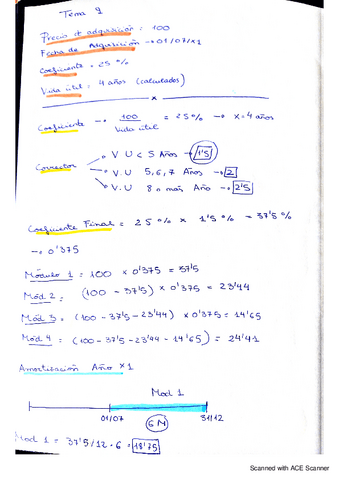 Tema 2
Precio de adquisición = 100
Fecha de Adquisición → 01/07/x1
Coeficiente = 25%
Vida útil = 4 años (calculados)
x
Coeficiente → 100 / Vida útil = 25% → x = 4 años
V U < 5 Años → 1'5
Corrector V.U 5, 6, 7 Años → 2
V.U 8 o más Año → 2'5
Coeficiente Final = 25% x 1'5% = 37'5%
→ 0'375
Módulo 1 = 100 x 0'375 = 37'5
Mód 2 = (100 - 37'5) x 0'375 = 23'44
Mód 3 = (100 - 37'5 - 23'44) x 0'375 = 14'65
Mód 4 = (100 - 37'5 - 23'44 - 14'65) = 24'41
Amortización Año x1
Mod 1
01/07 6 M 31/12
Mod 1 = 37'5/12 · 6 = 18'75
Scanned with ACE Scanner